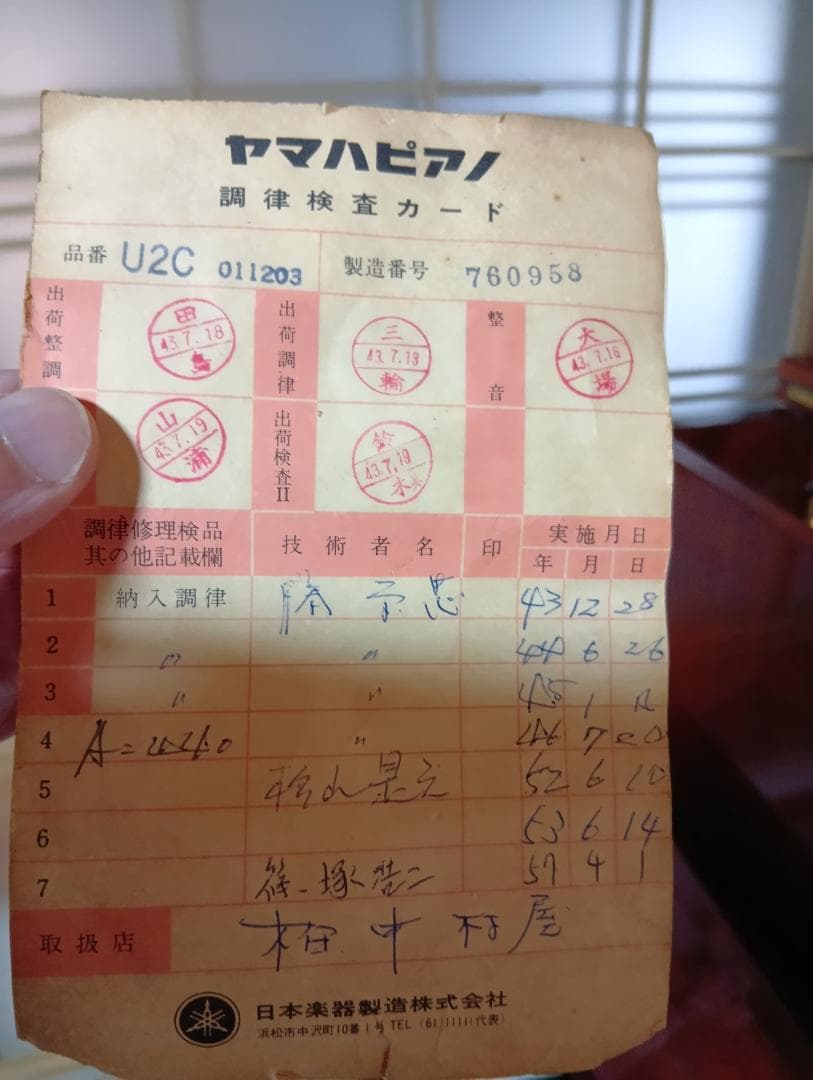 ヤマハピアノ
調律検査カード
品番 U2C 011203 製造番号 760958
出荷整調 田 43.7.18 島 出荷調律 三 43.7.18 輪 整音 大 43.7.16 場
山 43.7.19 浦 出荷検査II 鈴 43.7.19 木
調律修理検品 技術者名 印 実施月日
其の他記載欄 年 月 日
1 納入調律 43 12 28
2 〃 〃 44 6 26
3 〃 〃 45 1
4 〃 46 7 20
5 52 6 10
6 53 6 14
7 篠塚 57 4 1
取扱店 中村屋
日本楽器製造株式会社
浜松市中沢町10番1号 TEL (61)1111(代表)